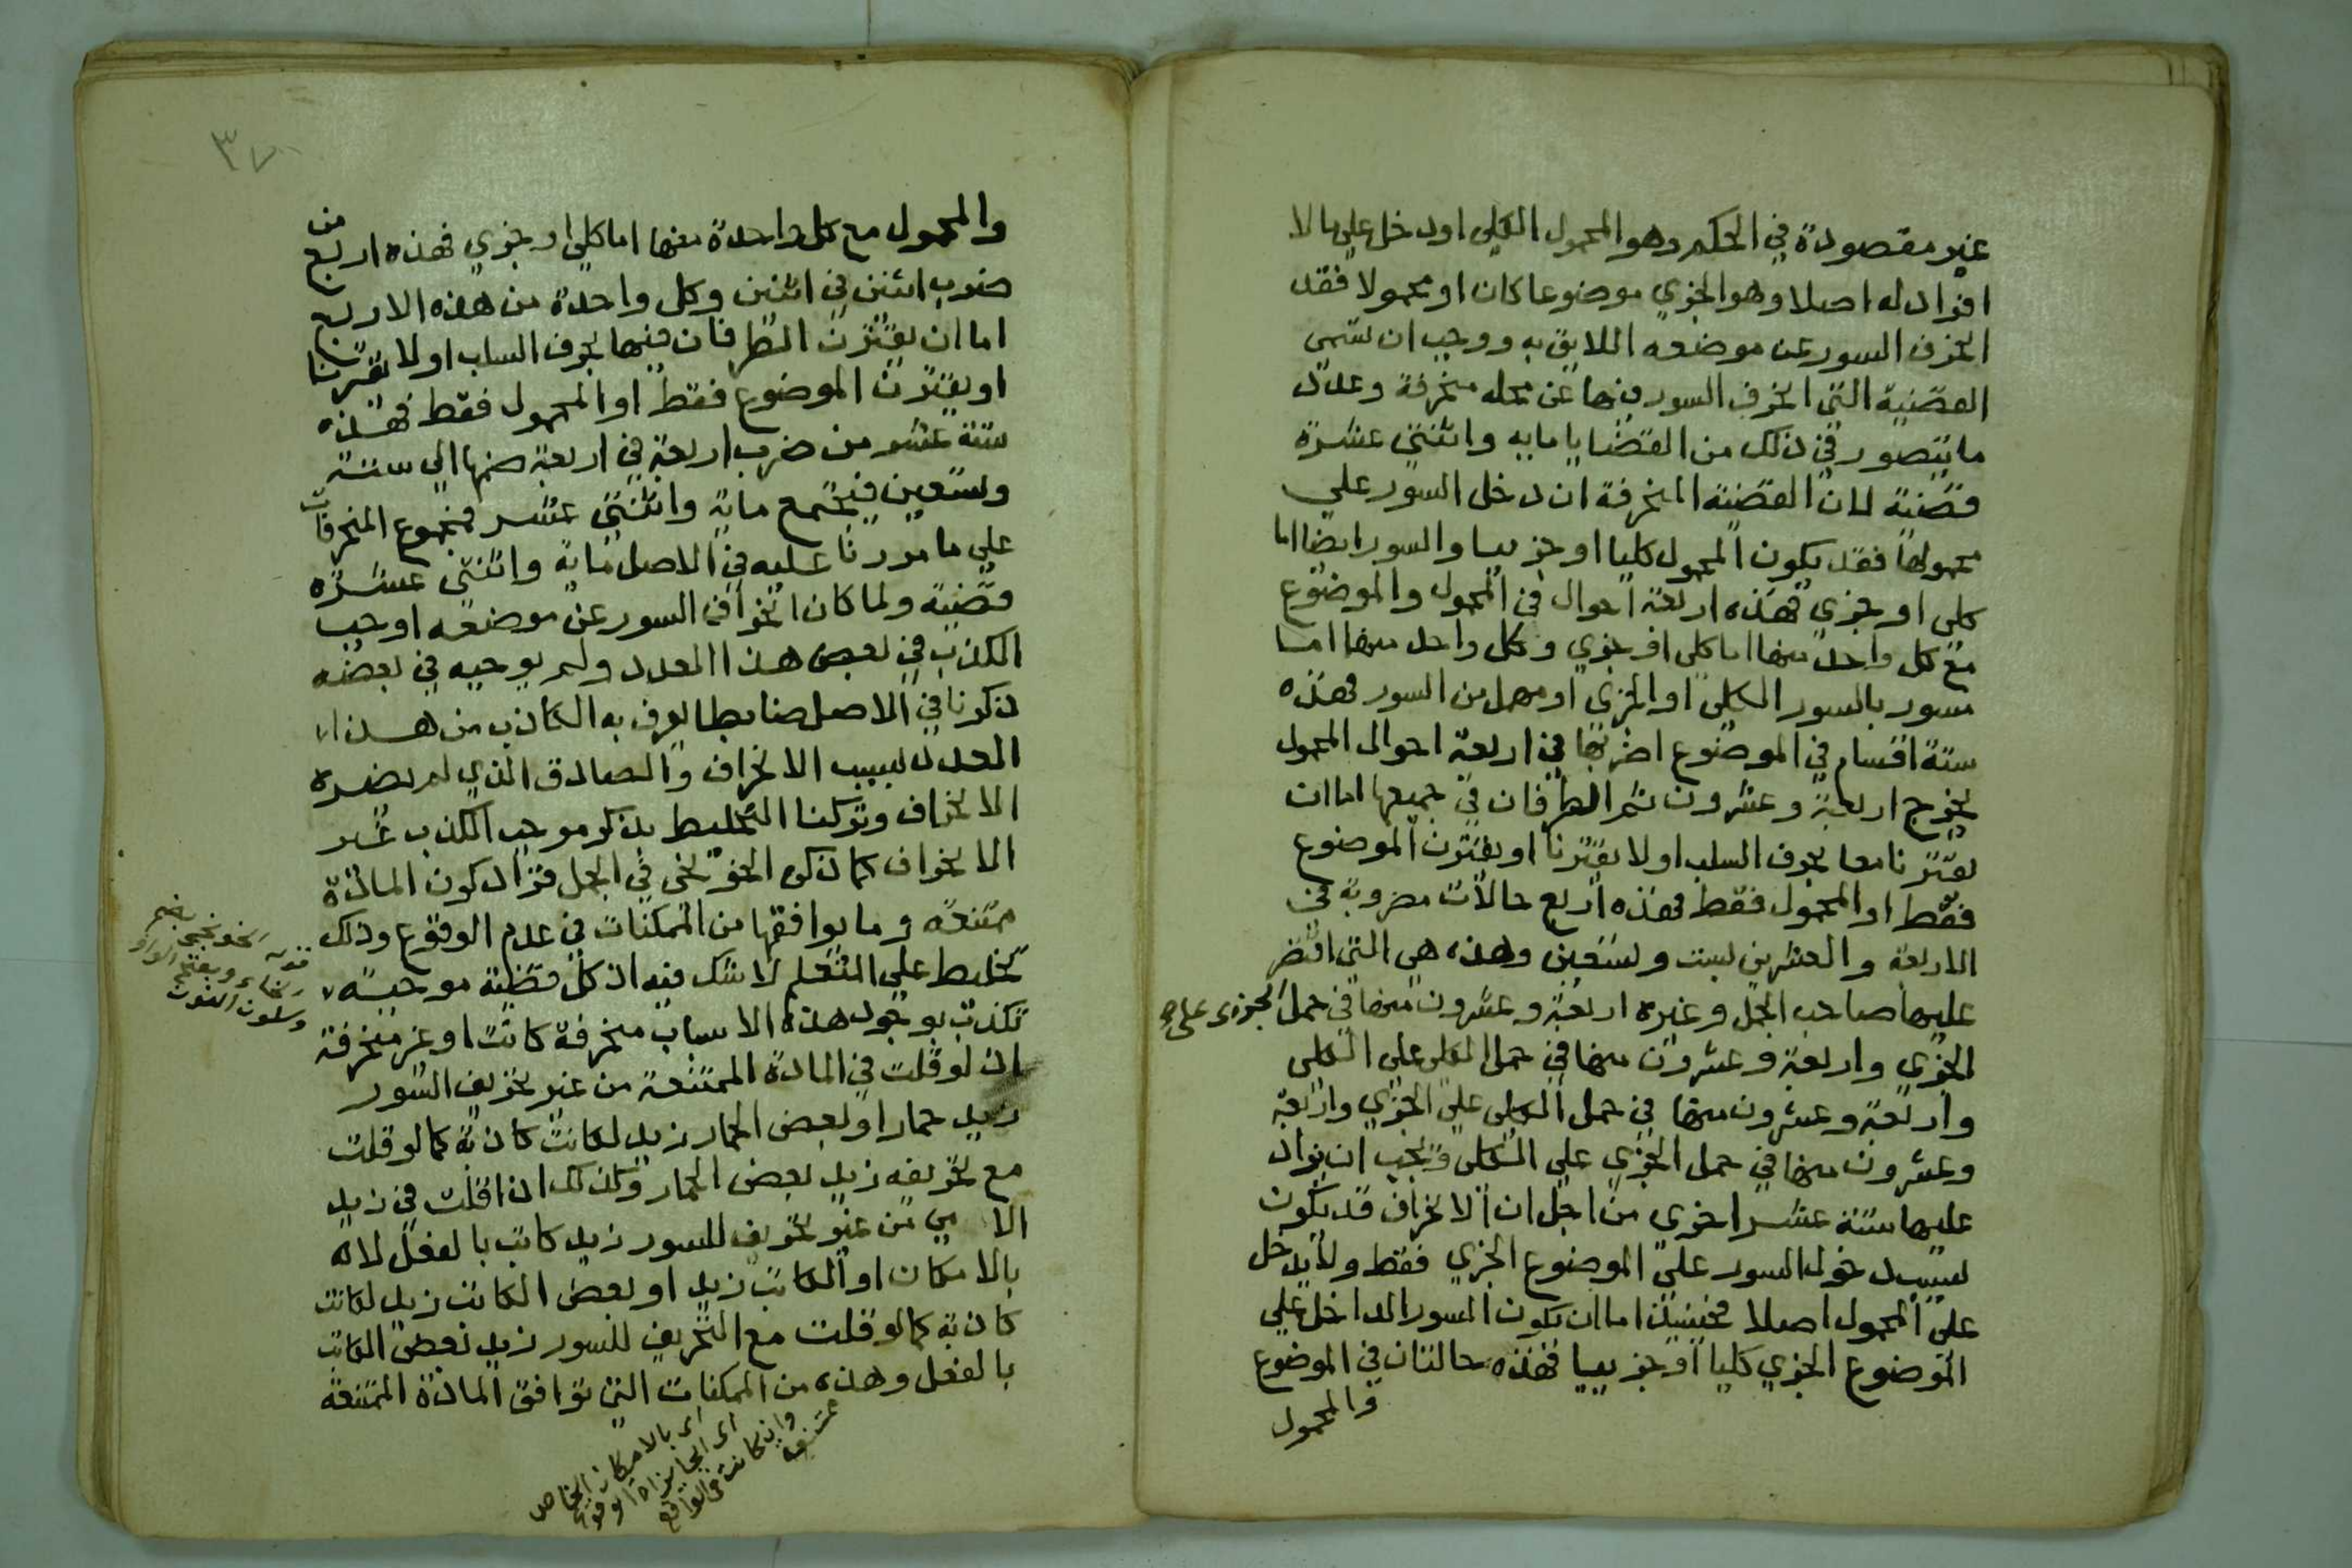 غير مقصودة في الحكم وهو المحمول الكلي او دخل على ما لا
افراد له اصلا وهو الجزي موضوعا كان او محمولا فقد
انحرف السور عن موضعه اللايق به ووجب ان تسمى
القضية التي انحرف السور فيها عن محله منحرفة وعدد
ما يتصور في ذلك من القضايا ماية واثنتي عشرة
قضية لان القضية المنحرفة ان دخل السور علي
محمولها فقد يكون المحمول كليا او جزييا والسور ايضا اما
كلي او جزي فهذه اربعة احوال في المحمول والموضوع
مع كل واحد منها اما كلي او جزي وكل واحد منها اما
مسور بالسور الكلي او الجزي او مهمل من السور فهذه
ستة اقسام في الموضوع اضربها في اربعة احوال المحمول
يخرج اربعة وعشرون ثم الطرفان في جميعها اما ان
يقترنا معا بحرف السلب او لا يقترنا او يقترن الموضوع
فقط او المحمول فقط فهذه اربع حالات مضروبة في
الاربعة والعشرين لست وتسعين وهذه هي التي اقتصر
عليها صاحب الجمل وغيره اربعة وعشرون منها في حمل الجزي على
الجزي واربعة وعشرون منها في حمل الكلي علي الكلي
واربعة وعشرون منها في حمل الكلي علي الجزي واربعة
وعشرون منها في حمل الجزي علي الكلي ويجب ان يزاد
عليها ستة عشر اخري من اجل ان الانحراف قد يكون
بسبب دخول السور علي الموضوع الجزي فقط ولا يدخل
علي المحمول اصلا فحينيذ اما ان يكون السور الداخل علي
الموضوع الجزي كليا او جزييا فهذه حالتان في الموضوع
والمحمول
٣٧
والمحمول مع كل واحدة منها اما كلي او جزي فهذه اربع من
ضرب اثنين في اثنين وكل واحدة من هذه الاربع
اما ان يقترن الطرفان فيها بحرف السلب او لا يقترنا
او يقترن الموضوع فقط او المحمول فقط فهذه
ستة عشر من ضرب اربعة في اربعة ضمها الي ستة
وتسعين فيجتمع ماية واثنتي عشر فمجموع المنحرفات
علي ما مررنا عليه في الاصل ماية واثنتي عشرة
قضية ولما كان انحراف السور عن موضعه اوجب
الكذب في بعض هذا العدد ولم يوجبه في بعضه
ذكرنا في الاصل ضابطا يعرف به الكاذب من هذا
العدد لسبب الانحراف والصادق الذي لم يضره
الانحراف وتركنا التخليط بذكر موجب الكذب غير
الانحراف كما ذكر الخونجي في الجمل فزاد كون المادة
ممتنعة وما يوافقها من الممكنات في عدم الوقوع وذلك
تخليط علي المتعلم لا شك فيه اذ كل قضية موجبة
تكذب بوجود هذه الاسباب منحرفة كانت او غير منحرفة
اذ لو قلت في المادة الممتنعة من غير تحريف السور
زيد حمار او بعض الحمار زيد لكانت كاذبة كما لو قلت
مع تحريفه زيد بعض الحمار وكذلك اذا قلت في زيد
الامي من غير تحريف للسور زيد كاتب بالفعل لانه
بالامكان او الكاتب زيد او بعض الكاتب زيد لكانت
كاذبة كما لو قلت مع التحريف للسور زيد بعض الكاتب
بالفعل وهذه من الممكنات التي توافق المادة الممتنعة
قوله الخونجي بضم
الخاء وبفتح الواو
وسكون النون
اي بالامكان الخاص
اي الجايزاة الوقوع
وان كانت في الواقع
ممتنعة